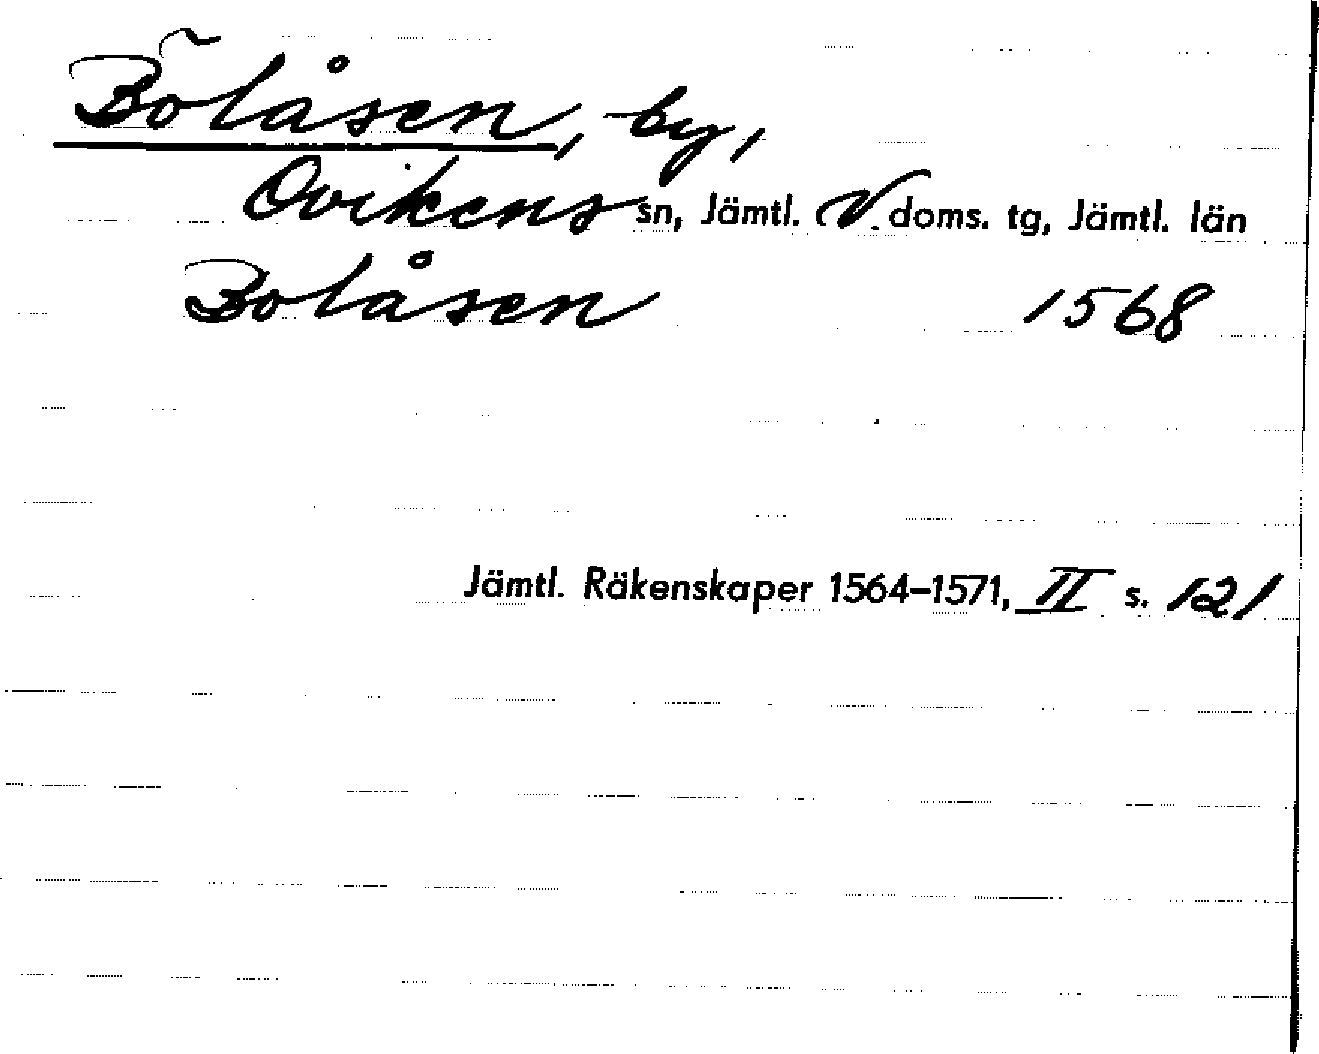 Bölåsen, by,
Ovikens sn, Jämtl. V. doms. tg, Jämtl. län
Bolåsen 1568
Jämtl. Räkenskaper 1564–1571, II s. 121